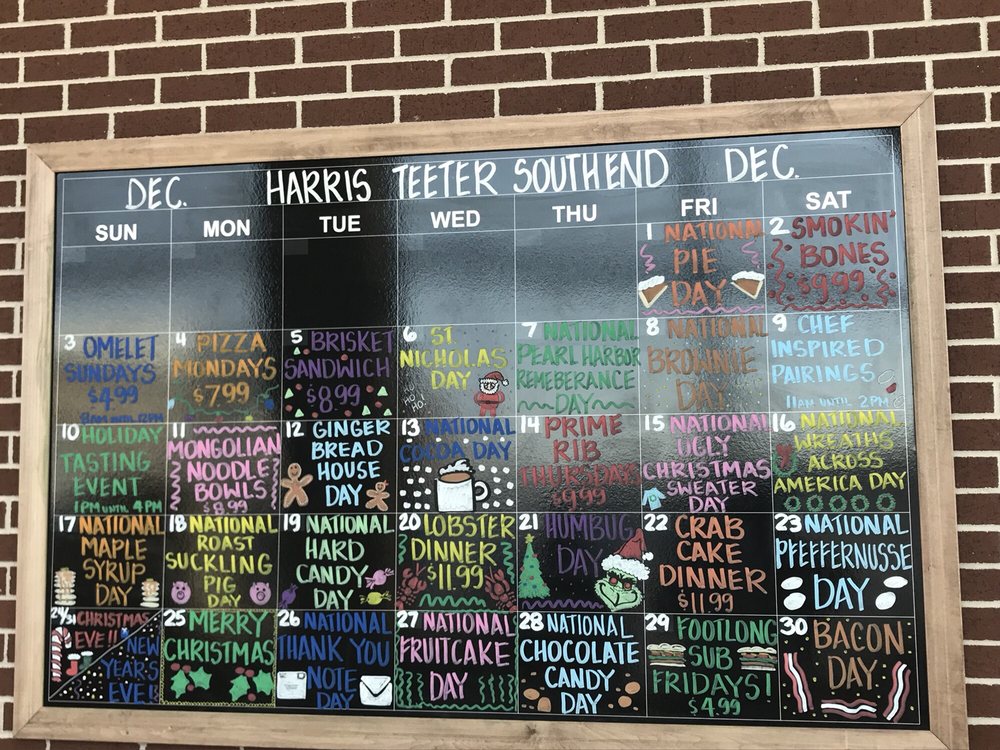 DEC. HARRIS TEETER SOUTHEND DEC.
SUN MON TUE WED THU FRI SAT
1 NATIONAL
PIE
DAY
2 SMOKIN'
BONES
$9.99
3 OMELET
SUNDAYS
$4.99
8AM UNTIL 12PM
4 PIZZA
MONDAYS
$7.99
5 BRISKET
SANDWICH
$8.99
6 ST
NICHOLAS
DAY
HO
HO!
7 NATIONAL
PEARL HARBOR
REMEBERANCE
DAY
8 NATIONAL
BROWNIE
DAY
9 CHEF
INSPIRED
PAIRINGS
11AM UNTIL 2PM
10 HOLIDAY
TASTING
EVENT
1PM UNTIL 4PM
11
MONGOLIAN
NOODLE
BOWLS
$8.99
12 GINGER
BREAD
HOUSE
DAY
13 NATIONAL
COCOA DAY
14 PRIME
RIB
THURSDAYS
$9.99
15 NATIONAL
UGLY
CHRISTMAS
SWEATER
DAY
16 NATIONAL
WREATHS
ACROSS
AMERICA DAY
17 NATIONAL
MAPLE
SYRUP
DAY
18 NATIONAL
ROAST
SUCKLING
PIG
DAY
19 NATIONAL
HARD
CANDY
DAY
20 LOBSTER
DINNER
$11.99
21 HUMBUG
DAY
22 CRAB
CAKE
DINNER
$11.99
23 NATIONAL
PFEFFERNUSSE
DAY
24/31 CHRISTMAS
EVE!!
NEW
YEAR'S
EVE!
25 MERRY
CHRISTMAS
26 NATIONAL
THANK YOU
NOTE
DAY
27 NATIONAL
FRUITCAKE
DAY
28 NATIONAL
CHOCOLATE
CANDY
DAY
29 FOOTLONG
SUB
FRIDAYS!
$4.99
30 BACON
DAY